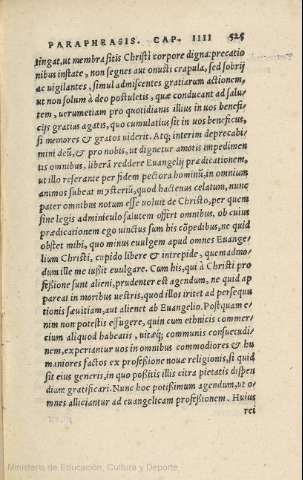 PARAPHRASIS. CAP. IIII 525
tingat, ut membra sitis Christi corpore digna: precatio
nibus instate, non segnes aut onusti crapula, sed sobrij
ac uigilantes, simul admiscentes gratiarum actionem,
ut non solum à deo postuletis, quæ conducant ad salu-
tem, uerumetiam pro quotidianis illius in uos benefi-
cijs gratias agatis, quo cumulatius sit in uos beneficus,
si memores & gratos uiderit. Atq; interim deprecabi-
mini deū, & pro nobis, ut dignetur amotis impedimen
tis omnibus, liberā reddere Euangelij prædicationem,
ut illo referante per fidem pectora hominū, in omnium
animos subeat mysteriū, quod hactenus celatum, nunc
pater omnibus notum esse uoluit de Christo, per quem
sine legis adminiculo salutem offert omnibus, ob cuius
prædicationem ego uinctus sum his cōpedibus, ne quid
obstet mihi, quo minus euulgem apud omnes Euange-
lium Christi, cupido libere & intrepide, quemadmo-
dum ille me iussit euulgare. Cum his, qui à Christi pro
fessione sunt alieni, prudenter est agendum, ne quid ap
pareat in moribus uestris, quod illos iritet ad persequu
tionis sæuitiam, aut alienet ab Euangelio. Postquam e-
nim non potestis effugere, quin cum ethnicis commer/
cium aliquod habeatis, uitæq; communis consuetudi-
nem, experiantur uos in omnibus commodiores & hu
maniores factos ex professione nouæ religionis, si quid
sit eius generis, in quo possitis illis citra pietatis dispen
diam gratificari. Nunc hoc potissimum agendum, ut o-
mnes alliciantur ad euangelicam professionem. Huius
rei
Ministerio de Educación, Cultura y Deporte